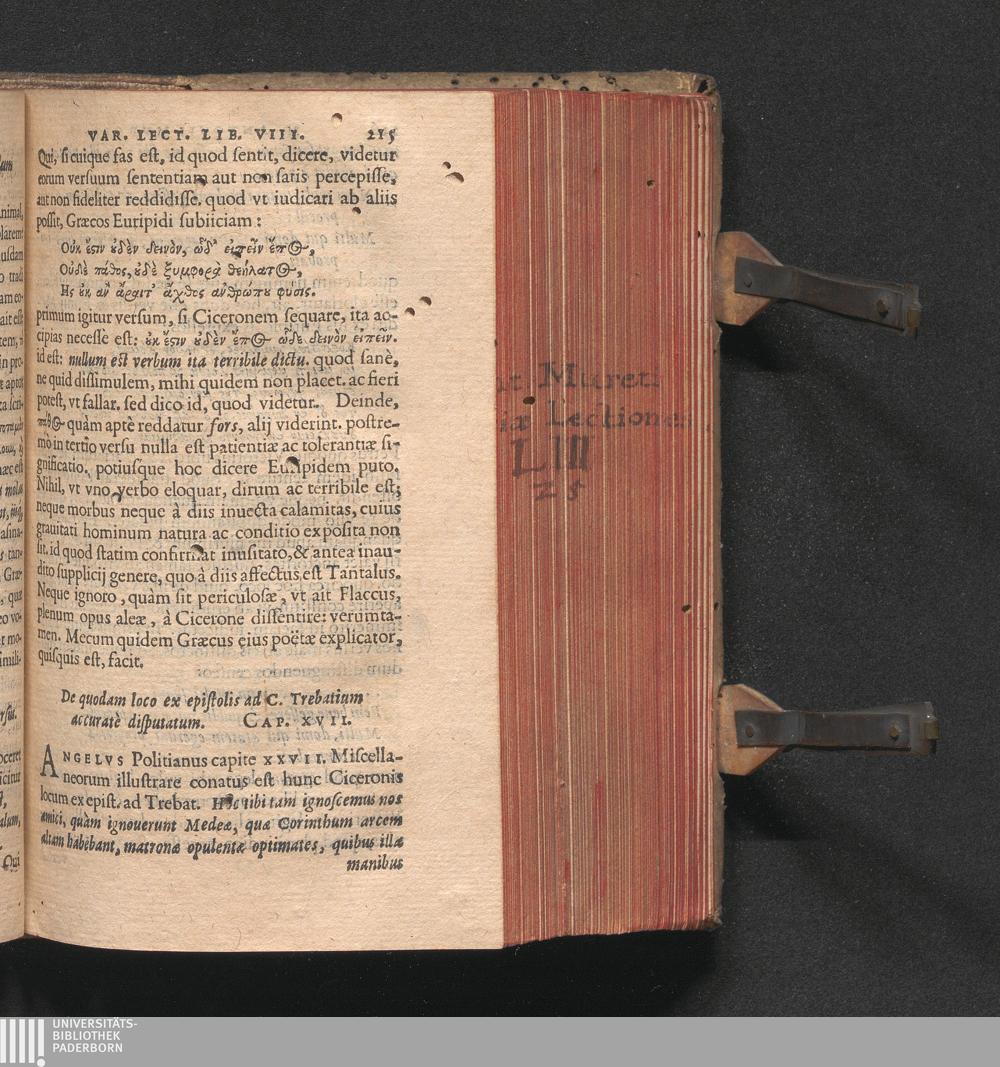 VAR. LECT. LIB. VIII. 215
Qui, si cuique fas est, id quod sentit, dicere, videtur
eorum versuum sententiam aut non satis percepisse,
aut non fideliter reddidisse. quod vt iudicari ab aliis
possit, Græcos Euripidi subiiciam:
Οὐκ ἔστιν ȣ̓δὲν δεινὸν, ὧδ' εἰπεῖν ἔπος,
Οὐδὲ πάθος, ȣ̓δὲ ξυμφορὰ θεήλατος,
Ης ȣ̓κ ἂν ἄραιτ' ἄχθος ἀνθρώπȣ φύσις.
primum igitur versum, si Ciceronem sequare, ita ac-
cipias necesse est: ȣ̓κ ἔστιν ȣ̓δὲν ἔπος ὧδε δεινὸν εἰπεῖν.
id est: nullum est verbum ita terribile dictu. quod sanè,
ne quid dissimulem, mihi quidem non placet. ac fieri
potest, vt fallar. sed dico id, quod videtur. Deinde,
πάθος quàm aptè reddatur fors, alij viderint. postre-
mò in tertio versu nulla est patientiæ ac tolerantiæ si-
gnificatio. potiusque hoc dicere Euripidem puto.
Nihil, vt vno verbo eloquar, dirum ac terribile est;
neque morbus neque à diis inuecta calamitas, cuius
grauitati hominum natura ac conditio exposita non
sit. id quod statim confirmat inusitato, & antea inau-
dito supplicij genere, quo à diis affectus est Tantalus.
Neque ignoro, quàm sit periculosæ, vt ait Flaccus,
plenum opus aleæ, à Cicerone dissentire: verumta-
men. Mecum quidem Græcus eius poëtæ explicator,
quisquis est, facit.
De quodam loco ex epistolis ad C. Trebatium
accuratè disputatum. CAP. XVII.
ANGELVS Politianus capite XXVII. Miscella-
neorum illustrare conatus est hunc Ciceronis
locum ex epist. ad Trebat. Hoc tibi tam ignoscemus nos
amici, quàm ignouerunt Medeæ, quæ Corinthum arcem
altam habebant, matronæ opulentæ optimates, quibus illa
manibus
Muret.
Lectiones
L III
25
UNIVERSITÄTS-
BIBLIOTHEK
PADERBORN